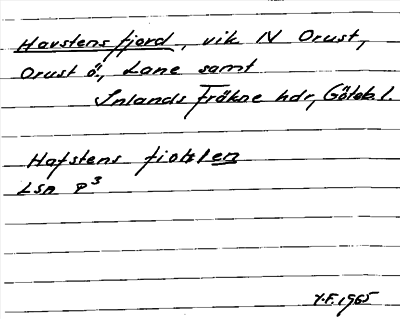 Havstensfjord, vik N Orust,
Orust ö, Lane samt
Inlands Fräkne hdr, Göteb. l.
Hafstens fiohlen
LSA P3
Y.F. 1965